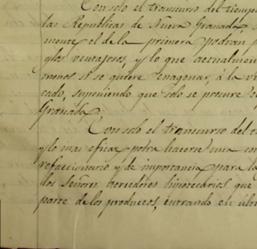 Con solo el transcurso del tiempo
las Republicas de Nueva Granada
mente el de la primera podran
y los ventajeros, y lo que actualmen
si se quiere à la
cado, suponiendo que solo se procure
Granada
Con solo el transcurso del
y lo mas eficaz podra hacerse una
refaccionario y de importancia para la
los Señores herederos hipotecarios que
parte de los productos, entrando en